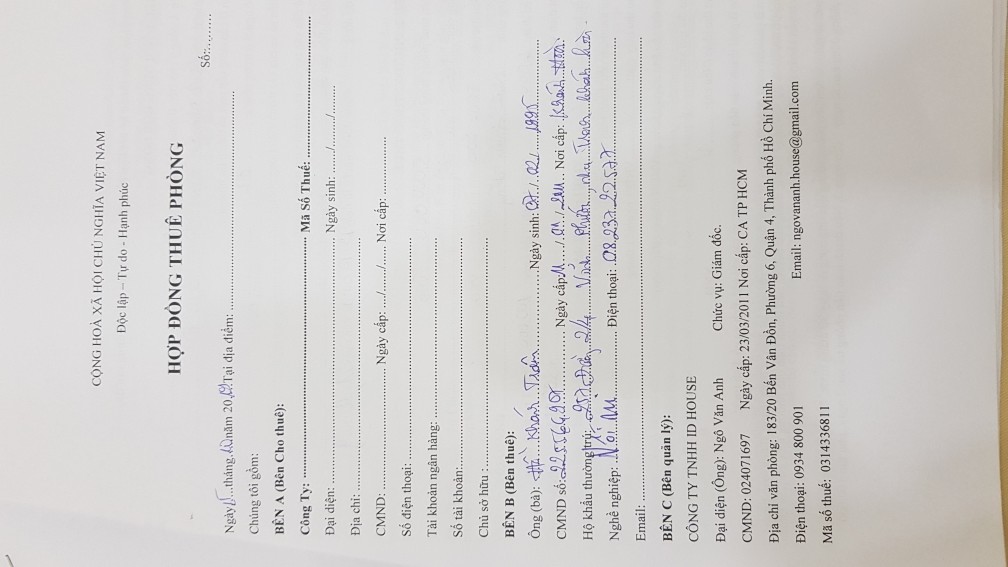 CỘNG HOÀ XÃ HỘI CHỦ NGHĨA VIỆT NAM
Độc lập – Tự do - Hạnh phúc
Số:.........
HỢP ĐỒNG THUÊ PHÒNG
Ngày 15 tháng 12 năm 2019 Tại địa điểm: ........................................
Chúng tôi gồm:
BÊN A (Bên Cho thuê):
Công Ty: ........................................ Mã Số Thuế: ........................................
Đại diện: ........................................ Ngày sinh: ....../....../........
Địa chỉ: ........................................
CMND: .............................. Ngày cấp: ..../..../..... Nơi cấp: ....................
Số điện thoại: ........................................
Tài khoản ngân hàng: ........................................
Số tài khoản: ........................................
Chủ sở hữu : ........................................
BÊN B (Bên thuê):
Ông (bà): Hồ Khánh Trâm Ngày sinh: 07 / 02 / 1995
CMND số: Ngày cấp: Nơi cấp: Khánh Hòa
Hộ khẩu thường trú: 2/4 Vĩnh Phước, Nha Trang, Khánh Hòa
Nghề nghiệp: Nội trợ Điện thoại:
Email: ........................................
BÊN C (Bên quản lý):
CÔNG TY TNHH ID HOUSE
Đại diện (Ông): Ngô Văn Anh Chức vụ: Giám đốc.
CMND: 024071697 Ngày cấp: 23/03/2011 Nơi cấp: CA TP HCM
Địa chỉ văn phòng: 183/20 Bến Vân Đồn, Phường 6, Quận 4, Thành phố Hồ Chí Minh.
Điện thoại: 0934 800 901 Email: ngovananh.house@gmail.com
Mã số thuế: 0314336811